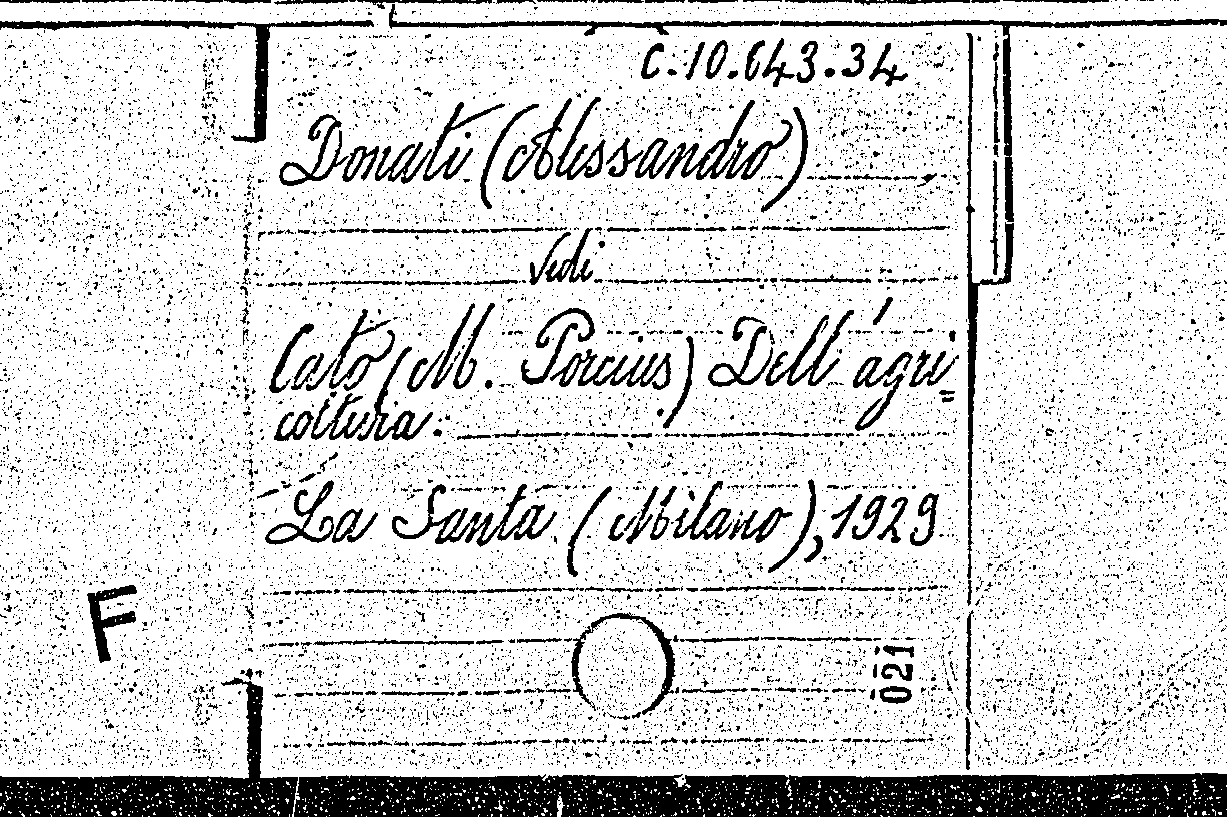 C.10.643.34
Donati (Alessandro)
Vedi
Cato (M. Porcius) Dell'agri=
coltura.
La Santa (Milano), 1929
F
021